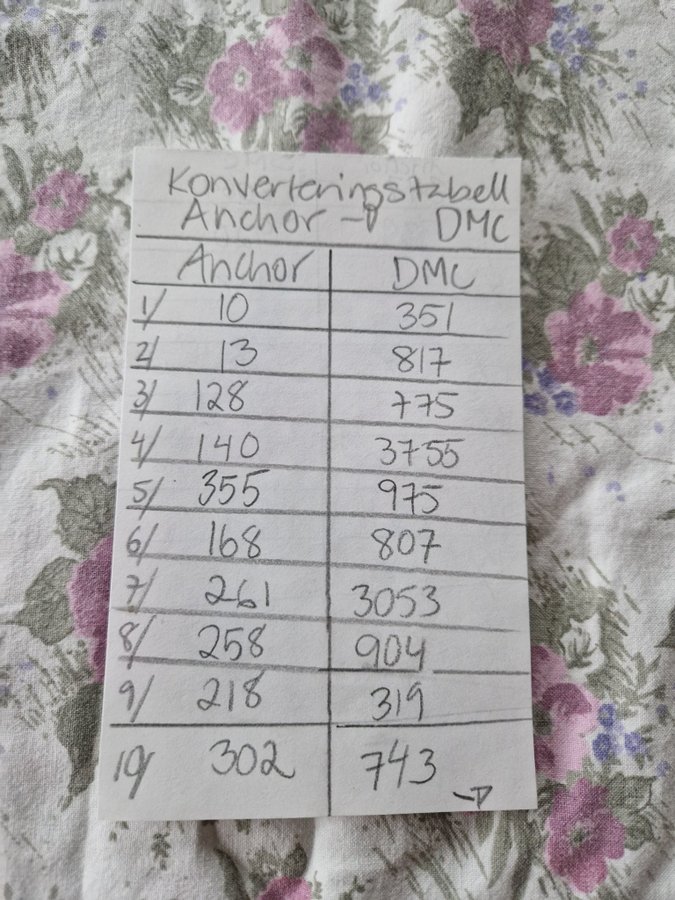 Konverteringstabell
Anchor → DMC
Anchor DMC
1/ 10 351
2/ 13 817
3/ 128 775
4/ 140 3755
5/ 355 975
6/ 168 807
7/ 261 3053
8/ 258 904
9/ 218 319
10/ 302 743
→